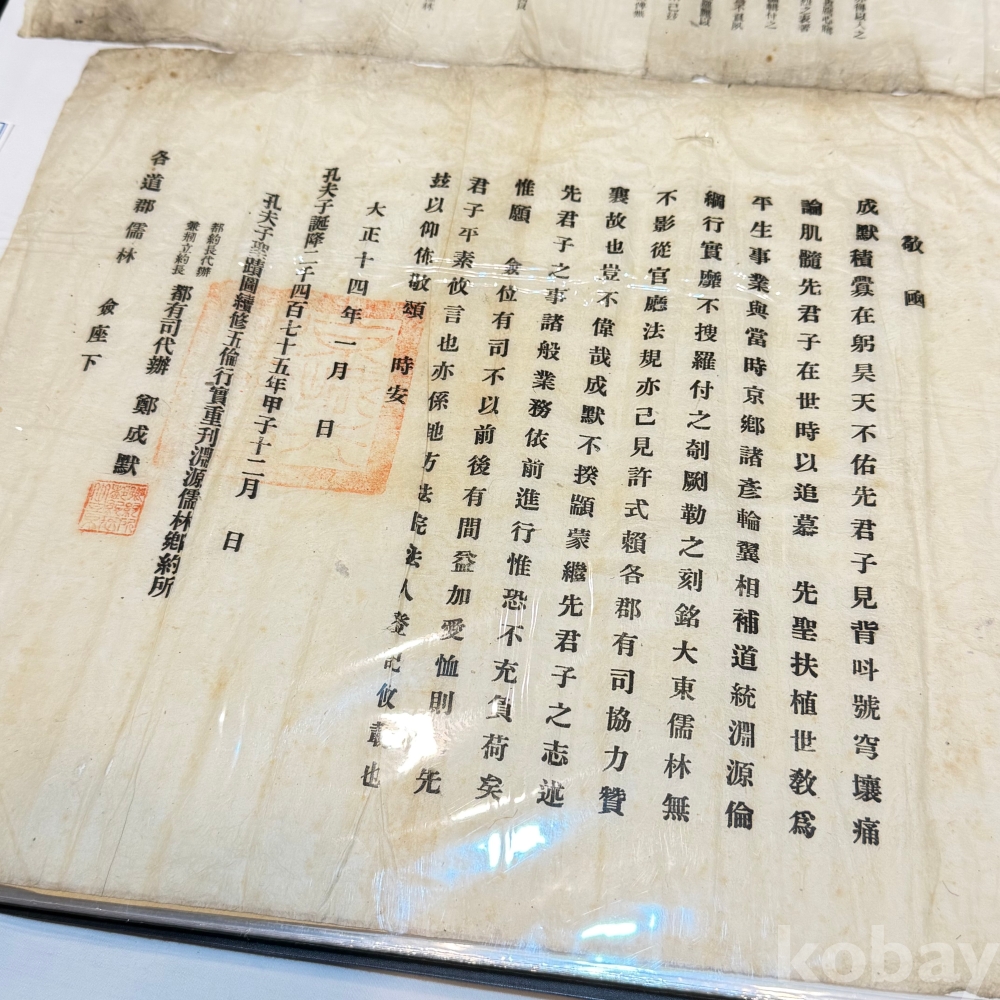 敬函
成默積釁在躬昊天不佑先君子見背叫號穹壤痛
論肌髓先君子在世時以追慕 先聖扶植世敎爲
平生事業與當時京鄕諸彥輪翼相補道統淵源倫
綱行實靡不搜羅付之剞劂勒之刻銘大東儒林無
不影從官廳法規亦已見許式賴各郡有司協力贊
襄故也豈不偉哉成默不揆顓蒙繼先君子之志述
先君子之事諸般業務依前進行惟恐不充負荷矣
惟願 僉位有司不以前後有間益加愛恤則 先
君子平素攸言也亦係地方法院法人登記攸載也
玆以仰佈敬頌 時安
大正十四年一月 日
孔夫子誕降二千四百七十五年甲子十二月 日
孔夫子聖蹟圖續修五倫行實重刊淵源儒林鄕約所
都約長代辦
兼刱立約長
都有司代辦 鄭成默
各道郡儒林 僉座下
kobay